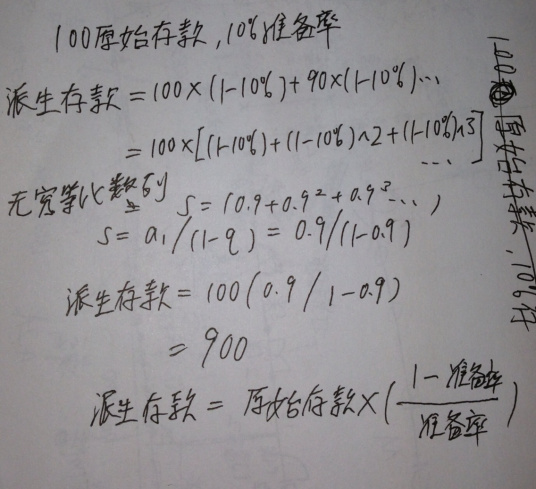 100原始存款,10%准备率
派生存款=100×(1-10%)+90×(1-10%)...
=100×[(1-10%)+(1-10%)^2+(1-10%)^3]
...
无穷等比数列 S=(0.9+0.9²+0.9³...,)
S=a₁/(1-q)=0.9/(1-0.9)
派生存款=100(0.9/1-0.9)
=900
派生存款=原始存款×(1-准备率/准备率)
100原始存款,10%存